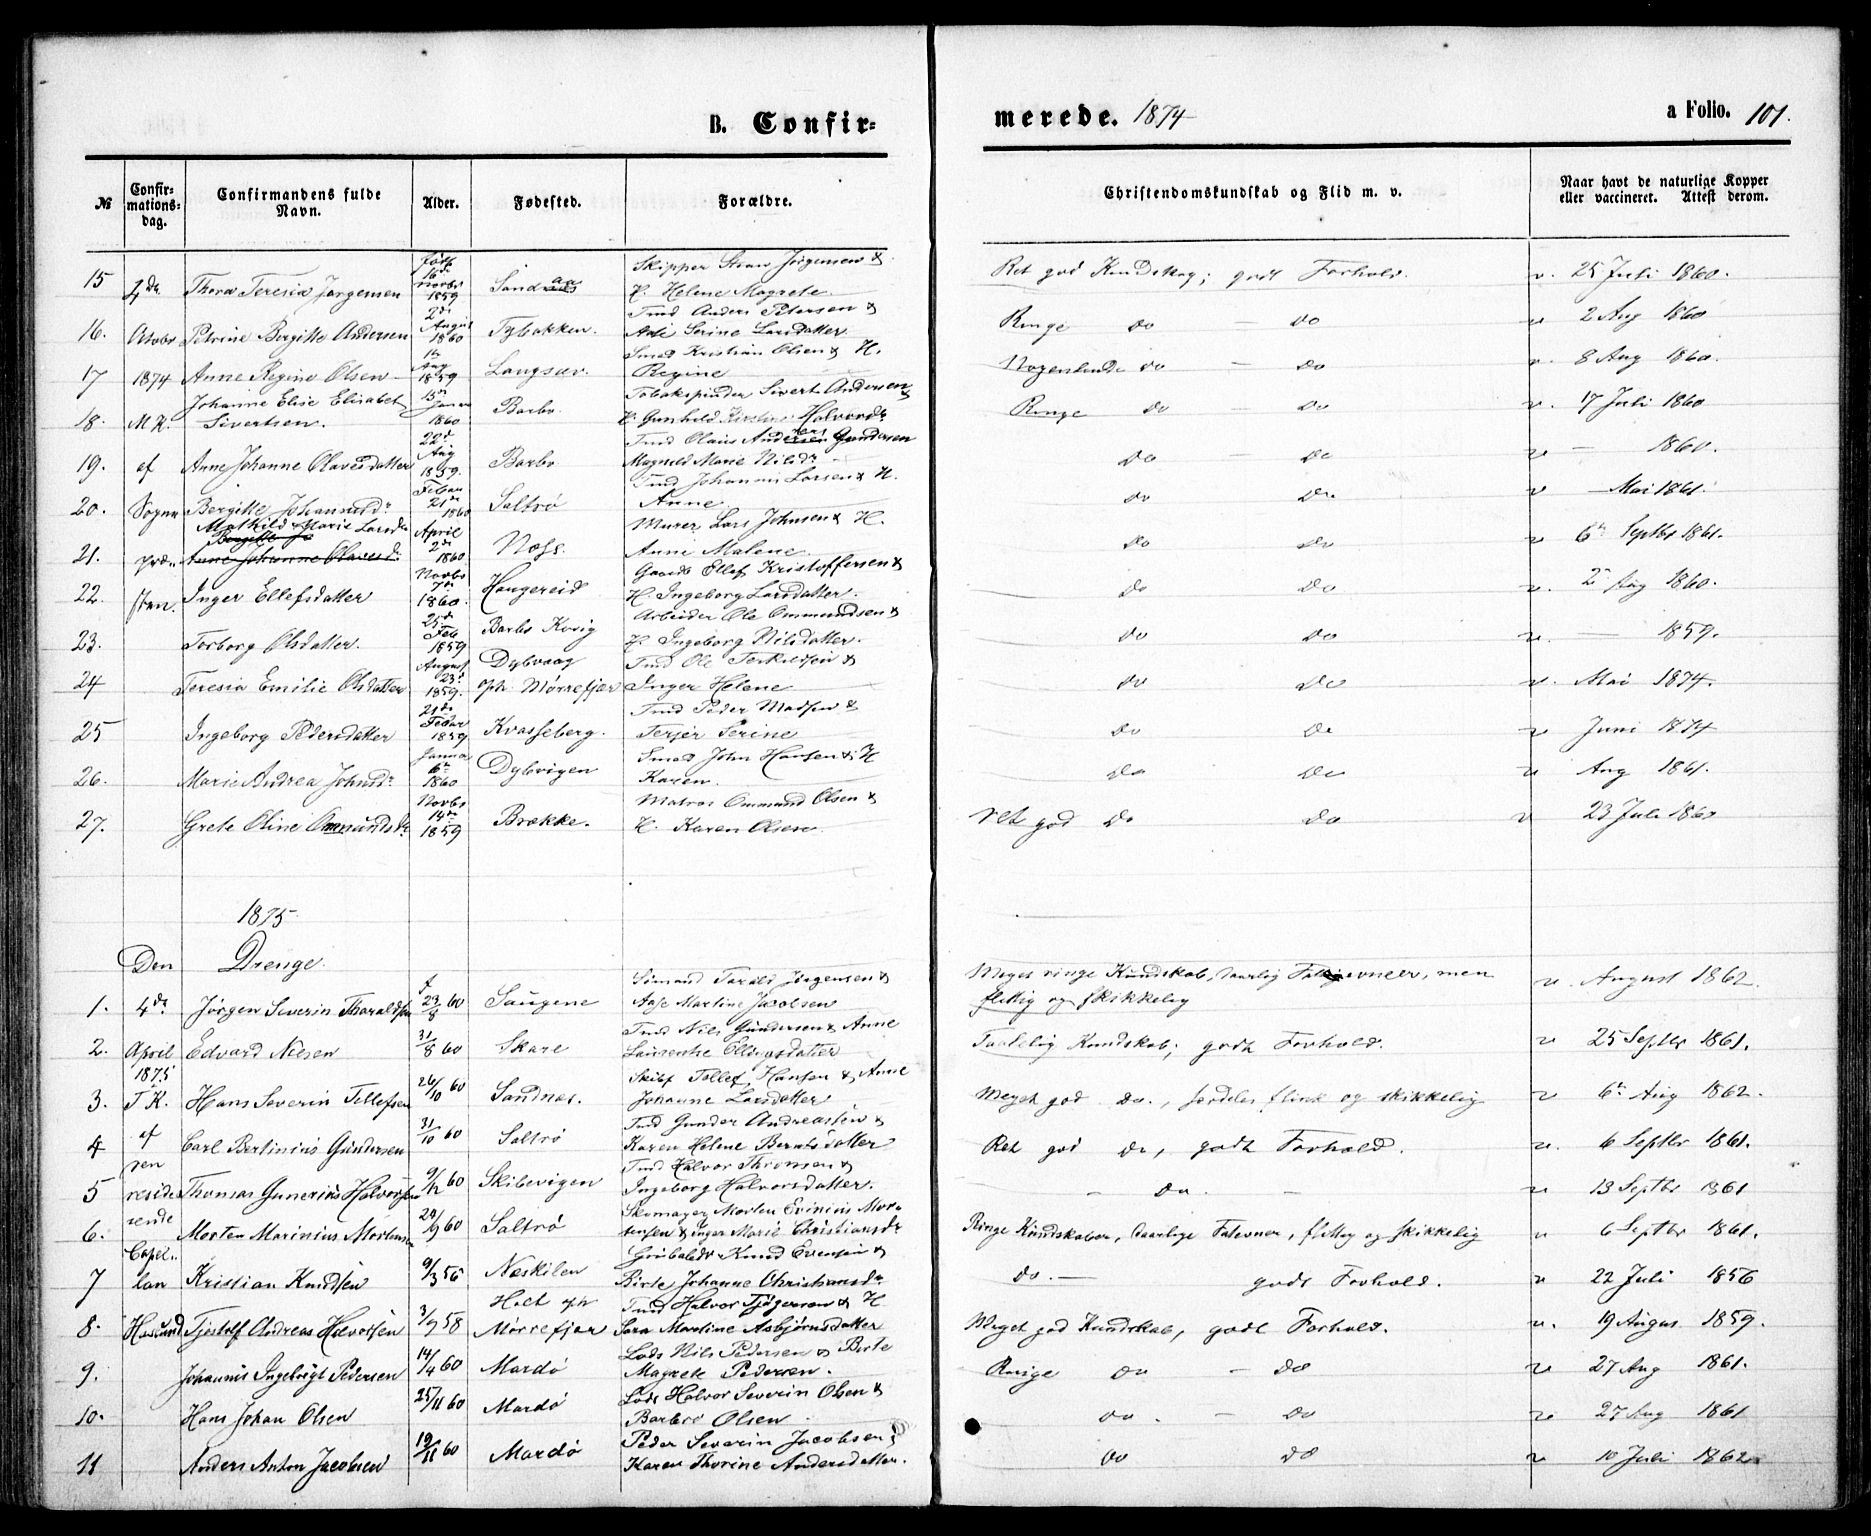 B. Confir=
merede. 1874
a Folio. 101.
№ Confir-mations-dag. Confirmandens fulde Navn. Alder. Fødested. Forældre. Christendomskundskab og Flid m. v. Naar havt de naturlige Kopper eller vaccineret. Attest derom.
Skipper Jørgensen &
15 4de Thora Teresia Jørgensen 16de Novbr 1859 H. Helene Magrete Ret god Kundskap; godt Forhold. v. 25 Juli 1860.
Tmd Anders Petersen &
16. Octobr Petrine Bergitte Andersen 2de August 1860 Tybakken. Serine Larsdatter Ringe do do v 2 Aug 1860
Smed Kristian Olsen & H.
17 1874 Anne Regine Olsen Aug 1859 Langsæv. Regine Nogenlunde do — do v. 8 Aug 1860.
Johanne Elise Elisabet Tobakspinder Sivert Andersen &
18. Sivertsen. 15de Janua 1860 Barbo. H. Gunhild Kirstine Halvorsdr Ringe do — do v. 17 Juli 1860
Tmd Olaus Gundersen
19. af Anne Johanne Olavesdatter 22d Aug 1859. Barbo Magnild Marie Nilsdr Do — do v — 1860.
Tmd Johannes Larsen & H.
20. Sogne Bergitte Johannesdr Febau 21de 1860 Saltrø Anne do Do v — Mai 1861.
Mathilde Marie Larsdr Murer Lars Johnsen & H.
21. præ= Anne Johanne Olavesdr April 2de 1860. Næss. Anne Malene. do do v 6te Septbr 1861.
Ellef Kristoffersen &
22. sten. Inger Ellefsdatter Novbr 7de 1860. Haugereid H. Ingeborg Larsdatter. do do v. 2de Aug 1860.
Arbeider Ole Ommundsen &
23. Torborg Olsdatter. 25de Feb 1859 Barbo Kvvig H. Ingeborg Nilsdatter. do do v. — 1859.
Dybvaag Tmd Ole Terkildsen &
24 Teresia Emilie Olsdatter August 23d 1859. oph. Mørrefjær Inger Helene do do v. Mai 1874.
Tmd Peder Madsen &
25 Ingeborg Pedersdatter 21de Febar 1859 Kvasseberg. Terjer Serine do do v Juni 1874
Smed John Hansen & H
26. Marie Andrea Johnsdr Janua 6te 1860 Dybvigen Karen. do do v Aug 1861.
Matros Ommund Olsen &
27. Grete Oline Ommundsdr Novbr 14de 1859 Brække. H. Karen Olsen ret god do do v 23 Juli 1860
1875
Den Drenge.
Sømand Tarald Jørgensen & Meget ringe Kundskab, daarlig, men
1. 4de Jørgen Severin Tharaldsen f 23/8 60 Saugene Aase Martine Jacobsen flittig og skikkelig v. August 1862.
Tmd Nils Gundersen & Anne
2. April Edvard Nilsen 31/8 60 Skare Laurentse Ellingsdatter Taalelig Kundskab; godt Forhold. v 25 Septbr 1861.
1875 Skibsf Tellef Hansen & Anne
3. T.K. Hans Severin Tellefsen 26/10 60 Sandnes. Johanne Larsdatter Meget god do., særdeles flink og skikkelig v 6te Aug 1862.
af Tmd Gunder Andreassen &
4 Carl Bertinius Gundersen 31/10 60 Saltrø Karen Helene Berntsdatter Ret god do, godt Forhold. v. 6 Septbr 1861.
den Tmd Halvor Thronsen &
5 reside Thomas Gunerius Halvorsen 9/12 60 Skibevigen Ingeborg Halvorsdatter. — do. — v 13 Septbr 1861
rende Skomager Morten Evinius Mor-
6. Morten Marinius Mortensen 29/9 60 Saltrø tensen & Inger Marie Christiansdr Ringe Kundskaber, daarlige Evner, flittig og skikkelig v 6 Septbr 1861.
Capel= Knud Evensen &
7 lan Kristian Knudsen 9/3 56 Næskilen Birte Johanne Christiansdr do. — godt Forhold. v 22 Juli 1856
Holt oph Tmd Halvor Tjøgersen & H
8. Tjostolf Andreas Halvorsen 3/9 58 Mørrefjær Sara Martine Asbjørnsdatter Meget god Kundskab, godt Forhold. v. 19 Augus 1859.
Lods Nils Pedersen & Birte
9. Johannes Ingebrigt Pedersen 14/4 60 Mardø Magrete Pedersen. Ringe do — do v 27 Aug 1861.
Lods Halvor Severin Olsen &
10. Hans Johan Olsen 25/11 60 Mardø Barbro Olsen do. — do v 27 Aug 1861
Peder Severin Jacobsen &
11 Anders Anton Jacobsen 19/11 60 Mardø Karen Thorine Andersdatter. do do v 10 Juli 1862